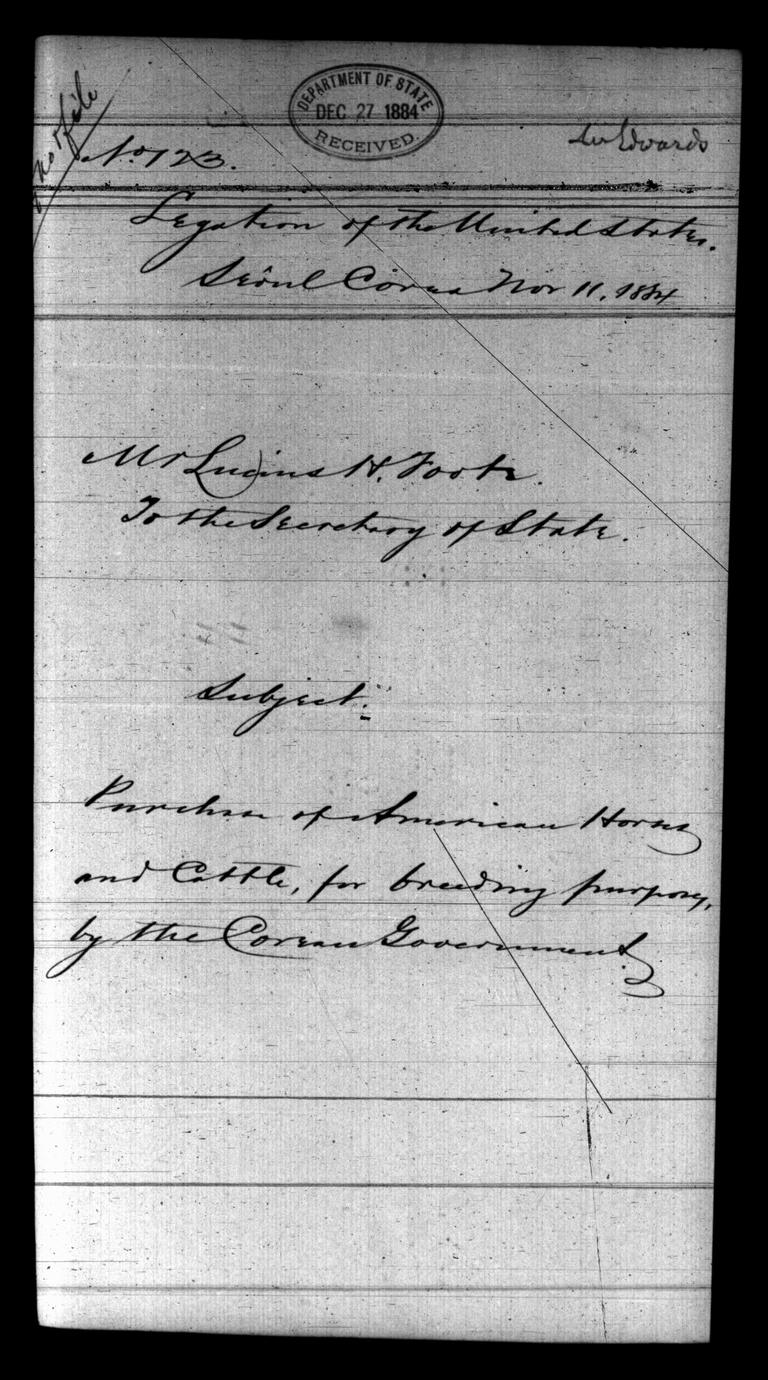 no file
DEPARTMENT OF STATE
DEC 27 1884
RECEIVED.
Edwards
No. 123.
Legation of the United States.
Seoul Corea Nov 11, 1884
Mr Lucius H. Foote.
To the Secretary of State.
Subject:
Purchase of American Horses
and Cattle, for breeding purposes,
by the Corean Government